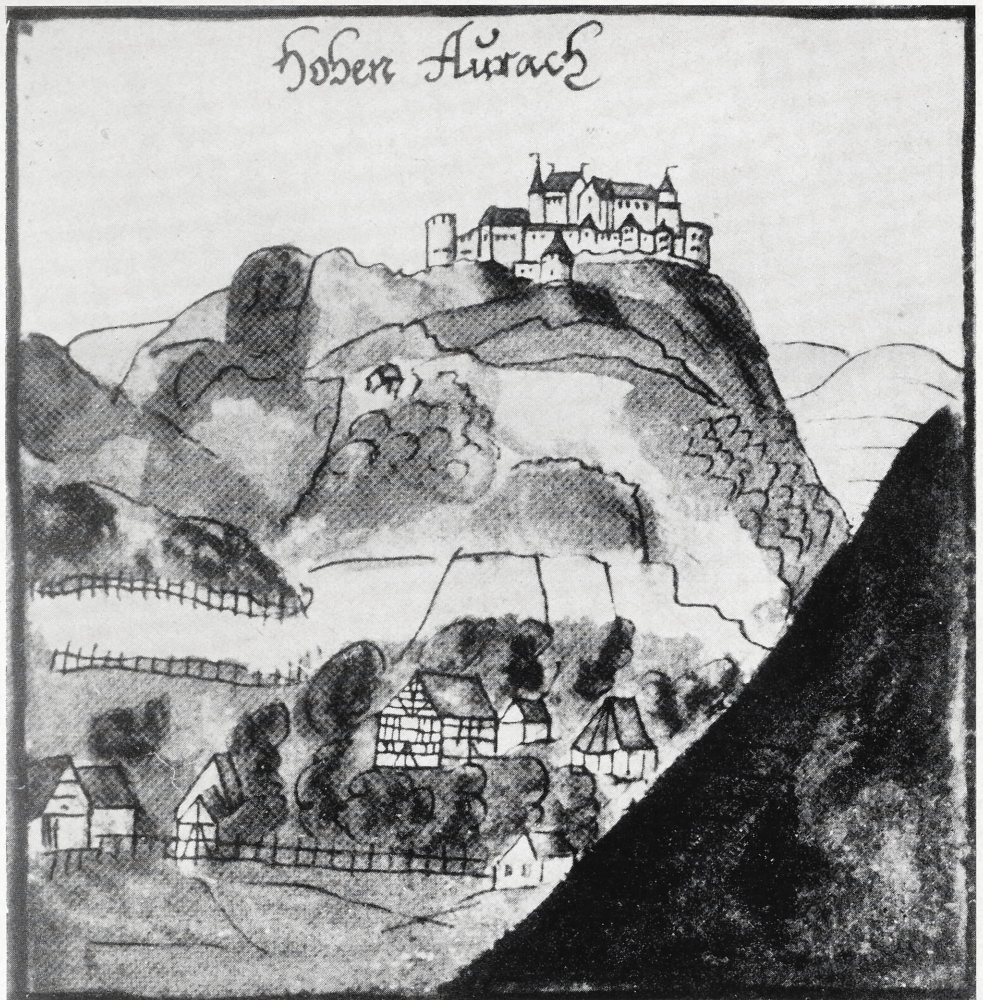 Hohen Aurach